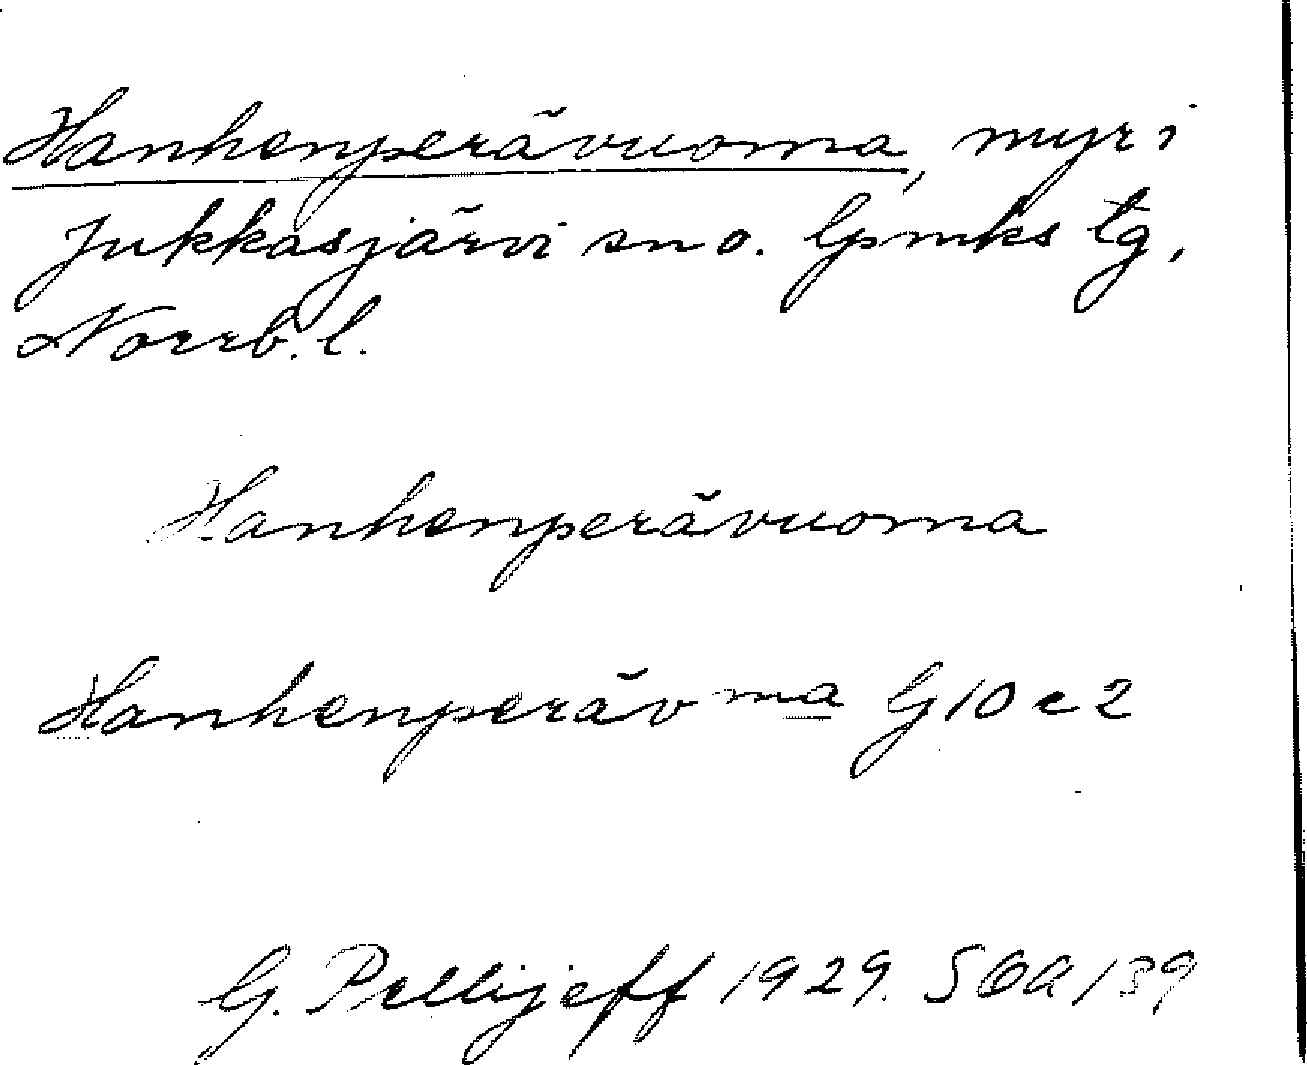 Hanhenperävuoma, myr i
Jukkasjärvi sn o. lpmks tg,
Norrb. l.
Hanhenperävuoma
Hanhenperäv ma G 10 c 2
G. Pellijeff 1929. SOA / 39